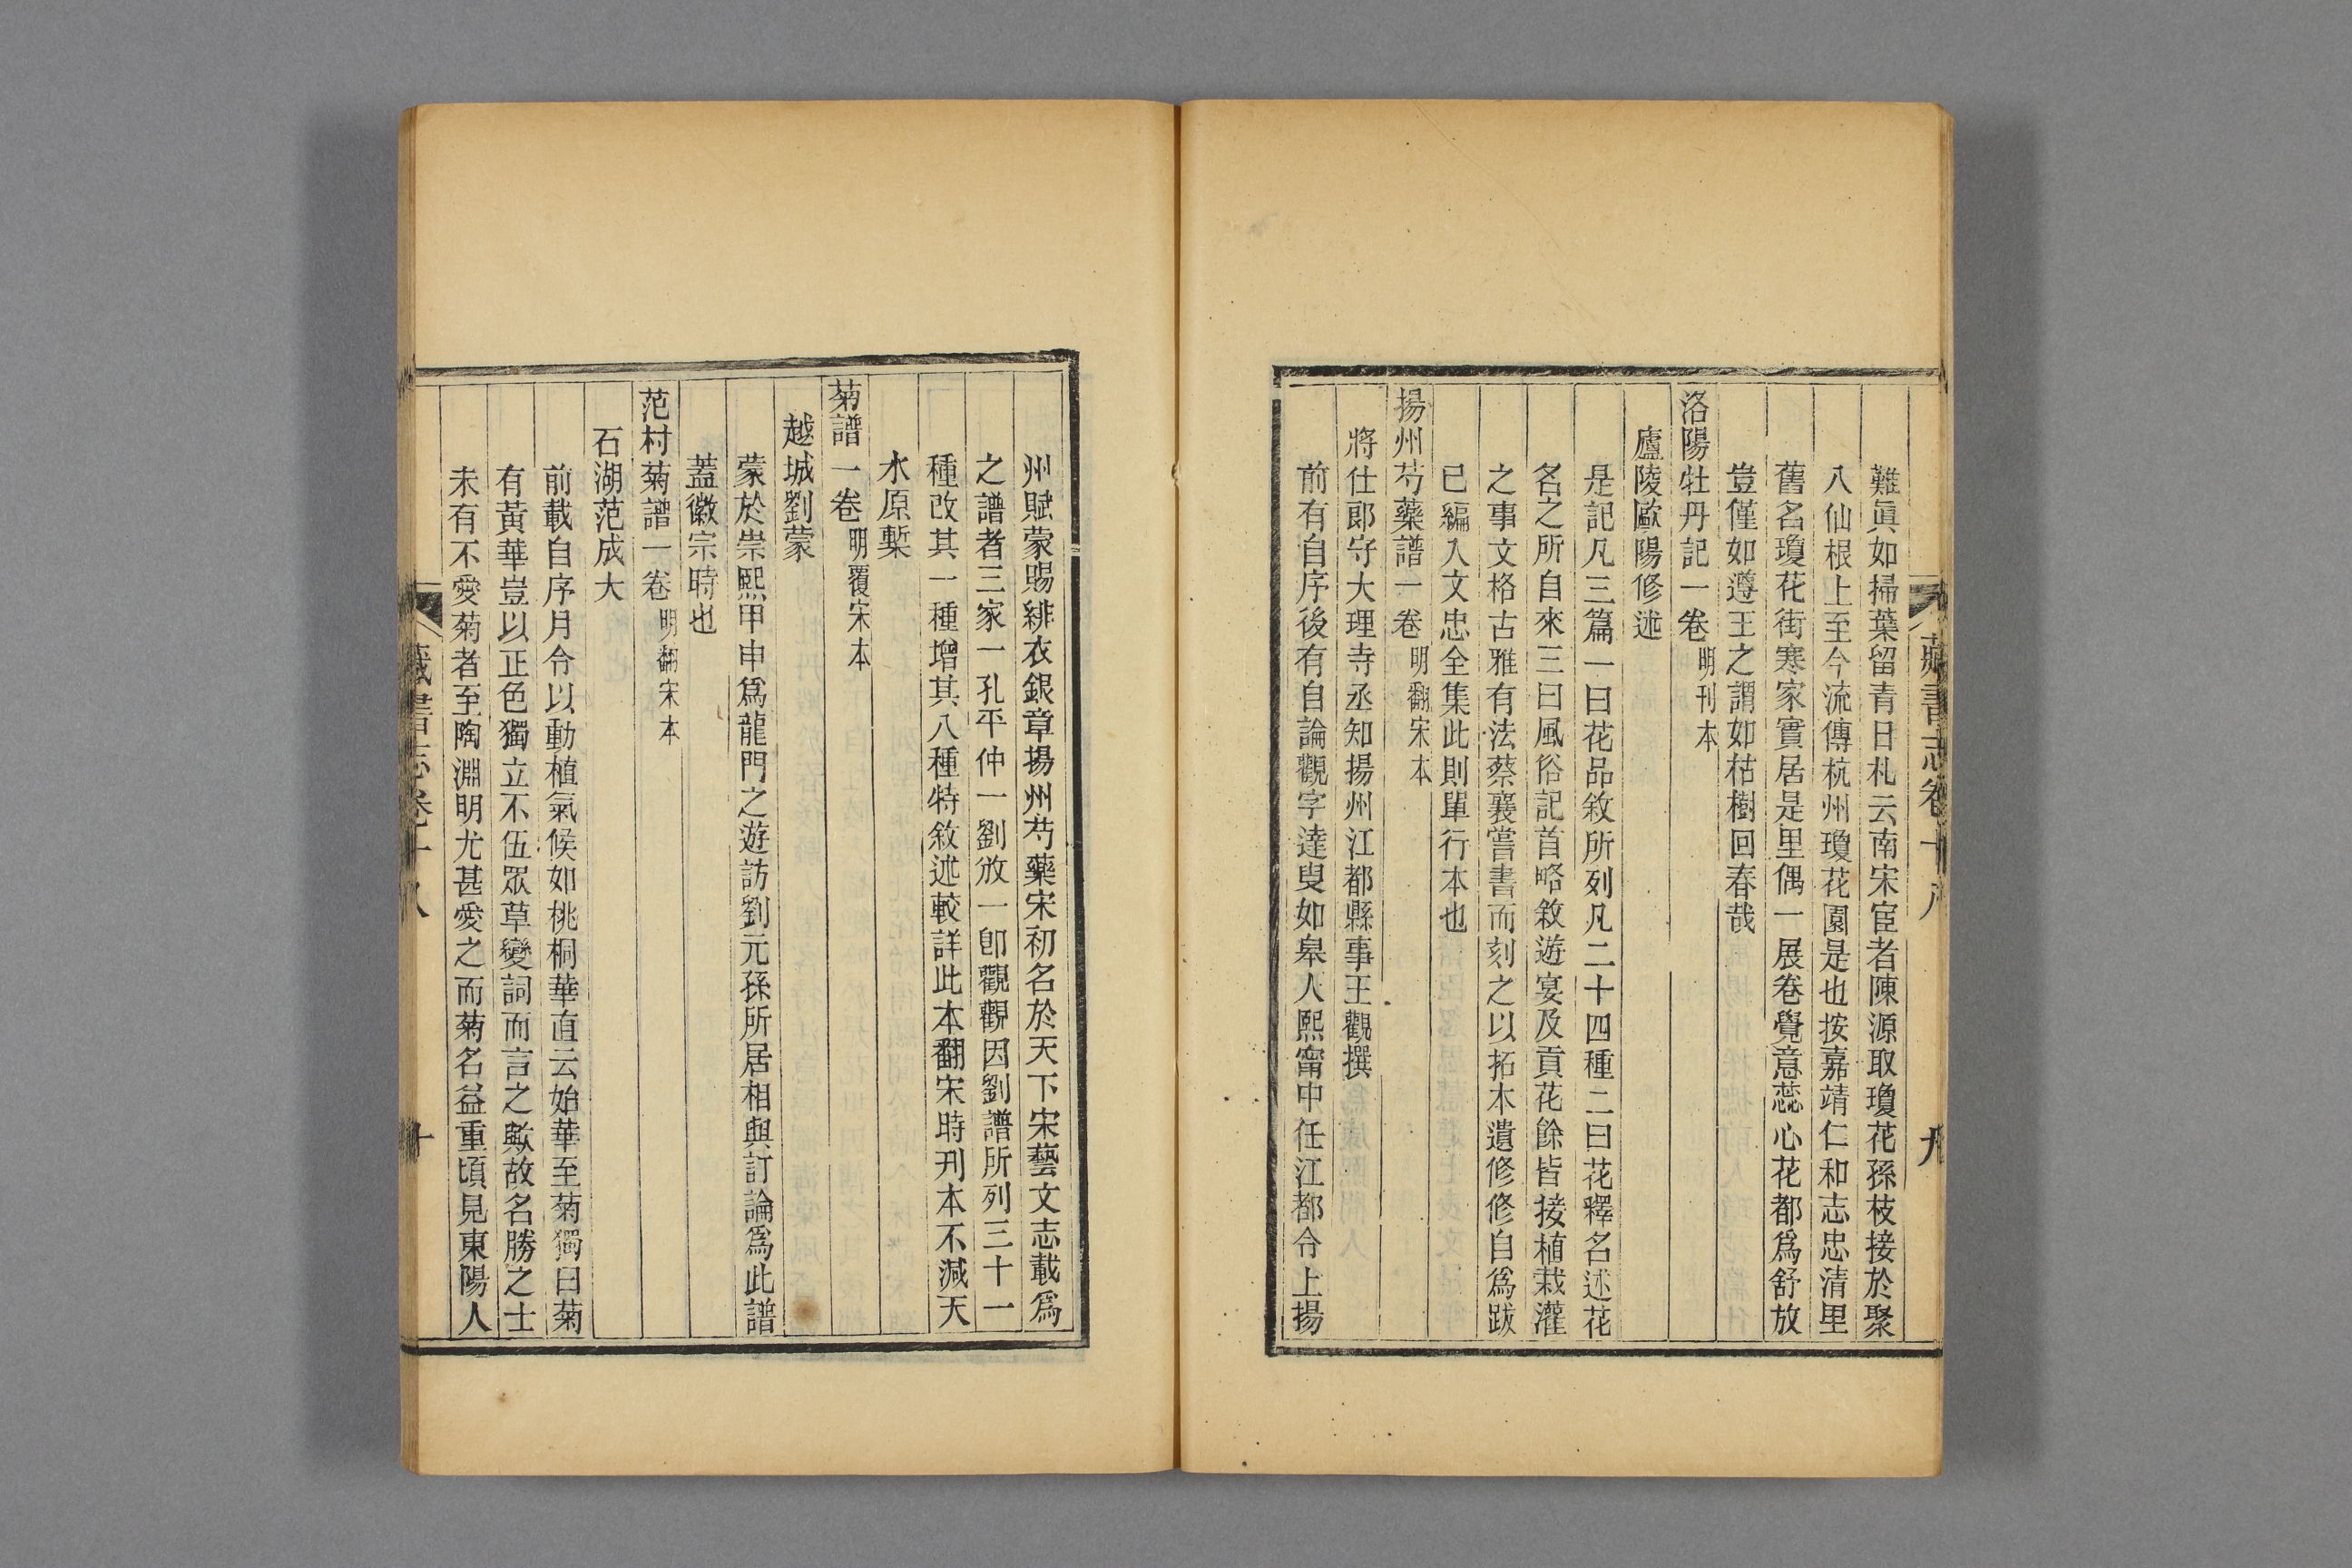 難眞如掃葉留青日札云南宋宦者陳源取瓊花孫枝接於聚
八仙根上至今流傳杭州瓊花園是也按嘉靖仁和志忠清里
舊名瓊花街寒家實居是里偶一展卷覺意蕊心花都爲舒放
豈僅如遵王之謂如枯樹回春哉
洛陽牡丹記一卷 明刊本
廬陵歐陽修述
是記凡三篇一曰花品敘所列凡二十四種二曰花釋名述花
名之所自來三曰風俗記首略敘遊宴及貢花餘皆接植栽灌
之事文格古雅有法蔡襄嘗書而刻之以拓本遺修修自爲跋
已編入文忠全集此則單行本也
揚州芍藥譜一卷 明翻宋本
將仕郎守大理寺丞知揚州江都縣事王觀撰
前有自序後有自論觀字達叟如皋人熙甯中任江都令上揚
藏書志卷十八 九
州賦蒙賜緋衣銀章揚州芍藥宋初名於天下宋藝文志載爲
之譜者三家一孔平仲一劉攽一卽觀觀因劉譜所列三十一
種改其一種增其八種特敘述較詳此本翻宋時刊本不減天
水原槧
菊譜一卷 明覆宋本
越城劉蒙
蒙於崇熙甲申爲龍門之遊訪劉元孫所居相與訂論爲此譜
蓋徽宗時也
范村菊譜一卷 明翻宋本
石湖范成大
前載自序月令以動植氣候如桃桐華直云始華至菊獨曰菊
有黃華豈以正色獨立不伍眾草變詞而言之歟故名勝之士
未有不愛菊者至陶淵明尤甚愛之而菊名益重頃見東陽人
藏書志卷十八 十